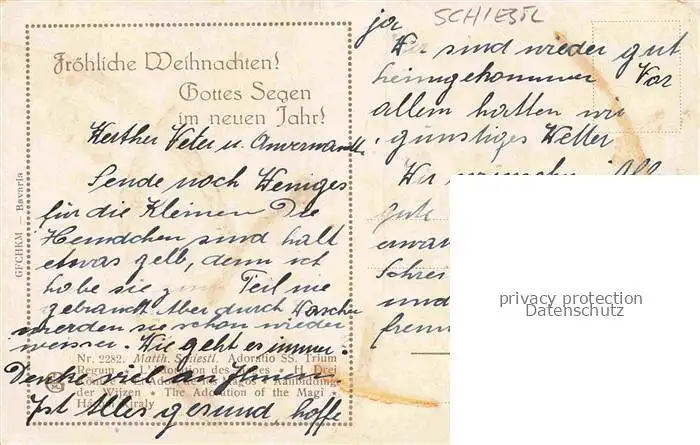 SCHIESTL
Fröhliche Weihnachten!
Gottes Segen
im neuen Jahr!
Werther Veter u. Anverwandte
Sende noch Weniges
für die Kleinen Die
Hemdchen sind halt
etwas gelb, denn ich
habe sie zum Teil nie
gebraucht Aber durch Waschen
werden sie schon wieder
weisser. Wie geht es immer.
Denke viel an Ihnen
Ist Alles gesund, hoffe
GFCHKM — Bavaria
Nr. 2282. Matth. Schiestl. Adoratio SS. Trium
Regum
der Wijzen * The Adoration of the Magi *
ja
Wir sind wieder gut
heimgekommen Vor
allem hatten wir
günstiges Wetter
Wir wünschen All
gute
erwar
Schrei
und
freun
privacy protection
Datenschutz